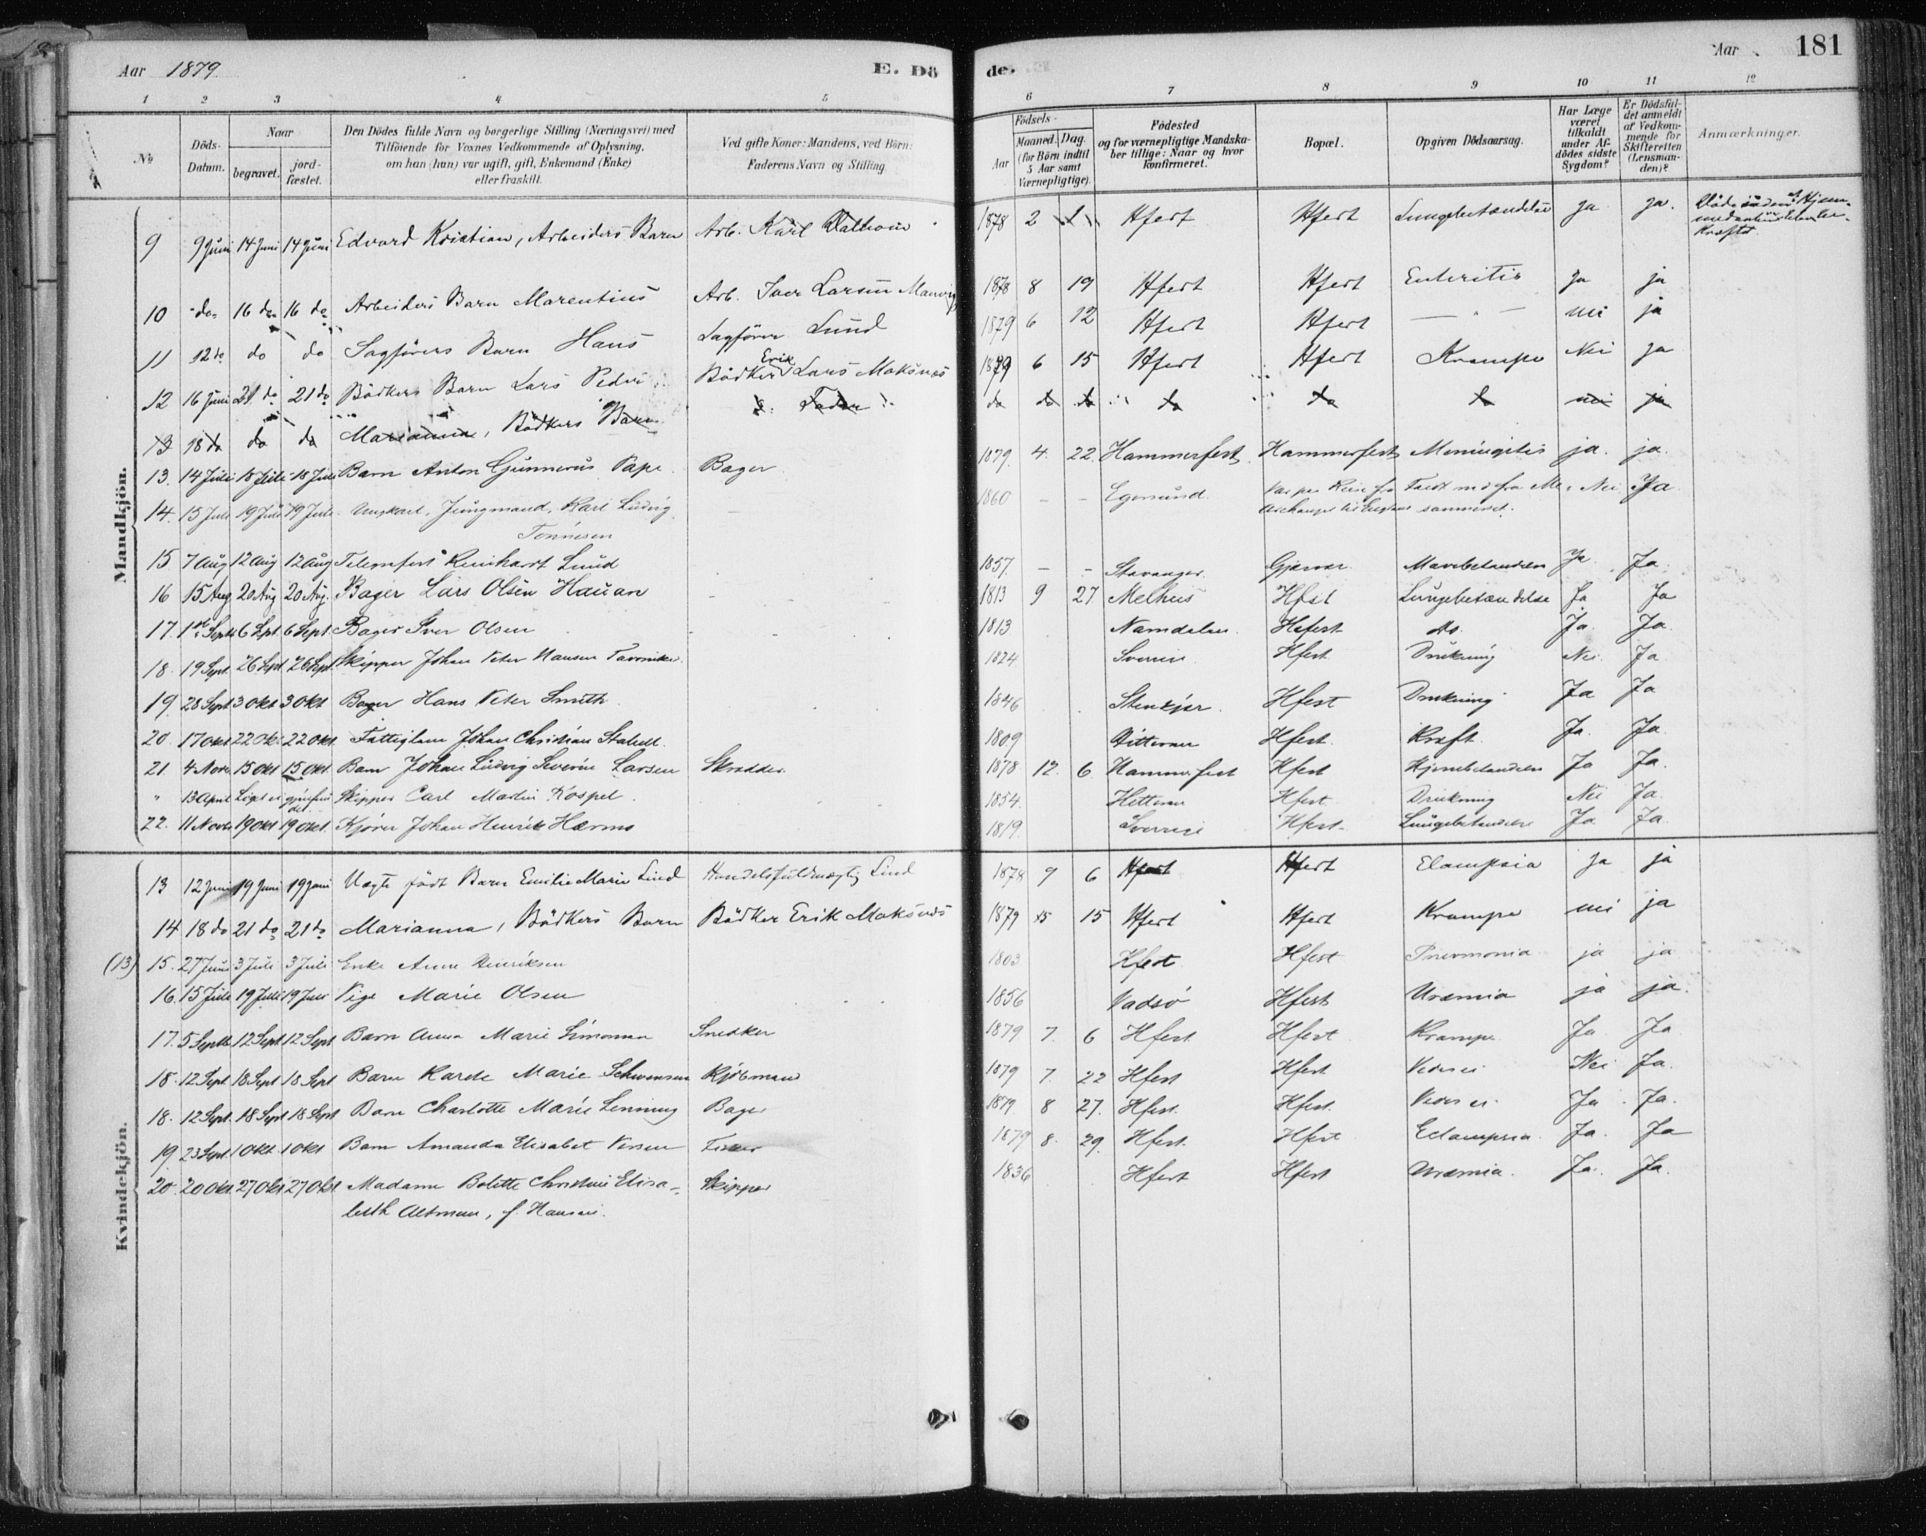 Aar 1879.
E. Dö
de.
Aar
181
1 2 3 4 5 6 7 8 9 10 11 12
No
Döds-Datum.
Naar
begravet.
jord-fæstet.
Den Dödes fulde Navn og borgerlige Stilling (Næringsvei) med
Tilföiende for Voxnes Vedkommende af Oplysning,
om han (hun) var ugift, gift, Enkemand (Enke)
eller fraskilt.
Ved gifte Koner: Mandens, ved Börn:
Faderens Navn og Stilling.
Födsels-
Aar
Maaned. Dag.
(for Börn indtil
5 Aar samt
Værnepligtige).
Födested
og for værnepligtige Mandska-
ber tillige: Naar og hvor
konfirmeret.
Bopæl.
Opgiven Dödsaarsag.
Har Læge
været
tilkaldt
under Af-
dödes sidste
Sygdom?
Er Dödsfal-
det anmeldt
af Vedkom-
mende for
Skifteretten
(Lensman-
den)?
Anmærkninger.
Mandkjön.
9 9 Juni 14 Juni 14 Juni Edvard Kristian, Arbeiders Barn Arb. Karl 1878 2 Hfest Hfest Lungebetændelse ja ja.
10 do 16 do 16 do Arbeiders Barn Marentius Arb. Iver Larsen 1878 8 19 Hfest Hfest Enteritis ja ja
11 12 do do do Sagförers Barn Hans Sagförer Lund 1879 6 12 Hfest Hfest — " — nei ja
12 16 Juni 21 do 21 do Bödkers Barn Lars Peder Bödker Erik Lars Moksnes 1879 6 15 Hfest Hfest Krampe Nei ja
13 18 do do do Marianna, Bödkers Barn s. Fader do do do do do do nei ja
13. 14 Juli 18 Juli 18 Juli Barn Anton Gunnerus Pape Bager 1879. 4. 22. Hammerfest Hammerfest Meningitis ja. ja.
14. 15 Juli 19 Juli 19 Juli Ungkarl, Jungmand, Karl Ludvig 1860 - - Egersund. Nei Ja
Tönnesen
15 7 Aug 12 Aug 12 Aug Reinhart Lund 1857 - - Stavanger. Ja Ja.
16 15 Aug 20 Aug 20 Aug. Bager Lars Olsen Hauan 1813 9 27 Melhus Hfest Lungebetændelse Ja Ja
17. 1st Sept 6 Sept. 6 Sept. Bager Iver Olsen 1813 Namdalen. Hfest do. Ja. Ja.
18. 19 Sept. 26 Sept 26 Sept. Skipper Johan Peter Hansen 1824 Sverrige Hfest Drukning Nei Ja
19. 28 Sept 3 Okt 3 Okt Bager Hans Peter Smith 1846 Stenkjær. Hfest Drukning Ja Ja
20. 17 Okt 22 Okt 22 Okt. Fattiglem Johan Christian 1809 Hitteren Hfest. Kræft. Ja. Ja.
21 4 Nov. 15 Okt 15 Okt. Barn Johan Ludvig Severin Larsen Skrædder. 1878 12. 6 Hammerfest Hfest Hjernebetændelse Ja Ja.
" 13 April Liget ei gjenfun- Skipper Carl Martin Kospel. 1854. Hitteren Hfest Drukning Nei Ja.
det
22. 11 Novbr 19 Okt 19 Okt. Johan Henrik Hærmo 1819. Sverrige Hfest Lungebetændelse Ja Ja.
Kvindekjön.
13 12 Juni 19 Juni 19 Juni Uægte födt Barn Emilie Marie Lind Handelsfuldmægtig Lind 1878 9 6 Hfest Hfest Elampsia ja ja
14 18 do 21 do 21 do Marianna, Bödkers Barn Bödker Erik Moksnes 1879 15 Hfest Hfest Krampe nei ja
(13) 15. 27 Juni 3 Juli 3 Juli Enke Anne Henriksen 1803 Hfest Hfest Pnevmonia ja ja
16. 15 Juli 19 Juli 19 Juli Pige Marie Olsen 1856 Vadsö Hfest Uræmia ja ja.
17. 5 Septb 12 Sept 12 Sept Barn Anna Marie Simonsen Snedker 1879 7. 6 Hfest Hfest Krampe Ja Ja
18. 12 Sept 18 Sept 18 Sept Barn Marie Kjöbmand 1879 7. 22 Hfest Hfest Vides ei Nei Ja.
18. 12 Sept. 18 Sept 18 Sept Barn Charlotte Marie Lenning Bager 1879. 8 27. Hfest. Hfest. Vides ei. Ja. Ja.
19. 23 Sept. 1 Okt. 1 Okt Barn Amanda Elisabet Fisker 1879 8. 29. Hfest. Hfest Eclampsia. Ja. Ja
20. 20 Okt 27 Okt 27 Okt Madame Bolette Christine Elisa- Skipper 1836 Hfest Hfest Uræmia. Ja. Ja.
beth Altman, f. Hansen.